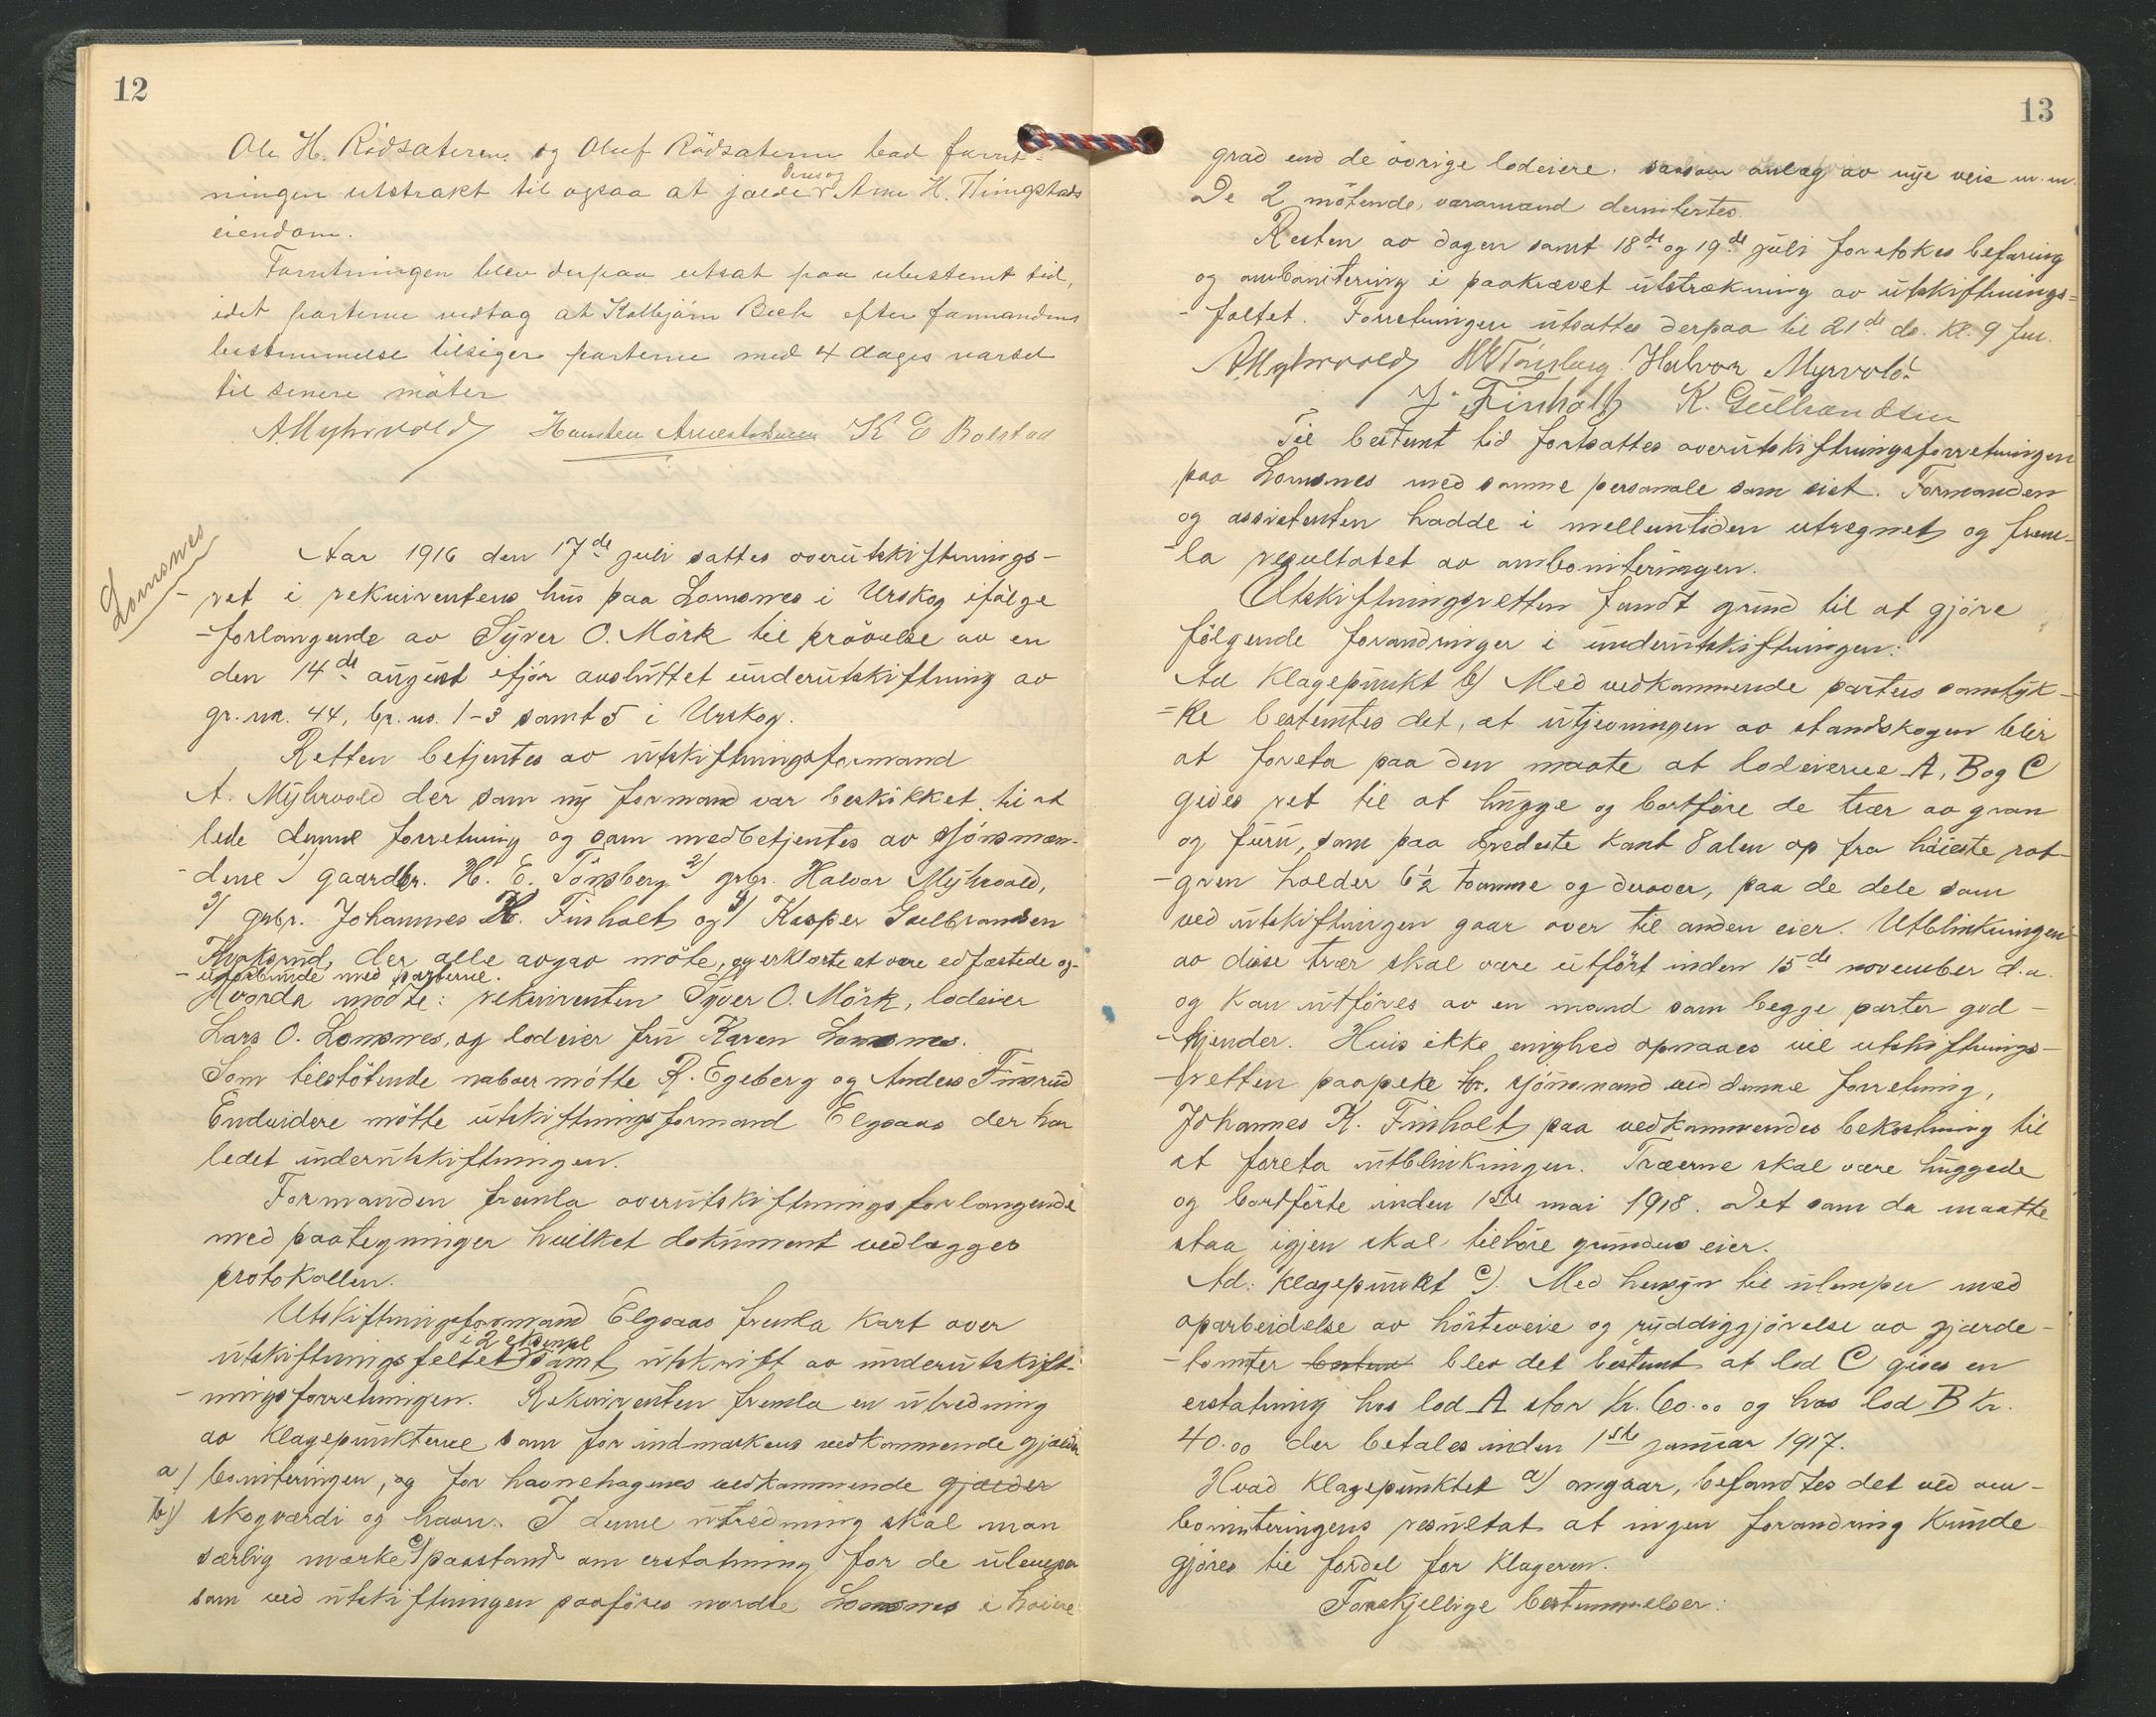 12
Ole H. Rödsæteren og Oluf Rödsæteren bad forret-
ningen utstrakt til ogsaa at gjælde deres og Anne H. Tingstads
eiendom.
Forretningen blev derpaa utsat paa ubestemt tid,
idet parterne vedtag at Kolbjörn Bech efter formandens
bestemmelse tilsiger parterne med 4 dages varsel
til senere möter
AMyhrvold K E Bolstad
Lomsnes
Aar 1916 den 17de juli sattes overutskiftnings-
ret i rekvirentens hus paa Lomsnes i Urskog ifölge
forlangende av Syver O. Mörk til prövelse av en
den 14de august ifjor avsluttet underutskiftning av
gr. nr. 44, br. no. 1-3 samt 5 i Urskog.
Retten betjentes av utskiftningsformand
A. Myhrvold der som ny formand var beskikket til at
lede denne forretning og som medbetjentes av skjönsmæn-
dene 1) gaardbr. H. E. Tönsberg 2) grbr. Halvor Myhrvold,
3) grbr. Johannes K. Finholt og 4) Kasper Gulbrandsen
Kroksrud, der alle avgav möte, og erklærte at være edfæstede og
uforbundne med parterne.
Hvorda mödte: rekvirenten Syver O. Mörk, lodeier
Lars O. Lomsnes, og lodeier fru Karen Lomsnes.
Som tilstötende naboer mötte R. Egeberg og Anders Finsrud
Endvidere mötte utskiftningsformand Elgsaas der har
ledet underutskiftningen.
Formanden fremla overutskiftningsforlangende
med paategninger hvilket dokument vedlægges
protokollen.
Utskiftningsformand Elgsaas fremla kart over
utskiftningsfeltet i 2 eksempl samt utskrift av underutskift-
ningsforretningen. Rekvirenten fremla en utredning
av klagepunkterne som for indmarkens vedkommende gjælder
a) boniteringen, og for havnehagenes vedkommende gjælder
b) skogværdi og havn. I denne utredning skal man
særlig merke c) paastand om erstatning for de ulemper
som ved utskiftningen paaföres nordre Lomsnes i höiere
13
grad end de övrige lodeiere, saasom anlæg av nye veie m.m.
De 2 mötende varamænd demitertes.
Resten av dagen samt 18de og 19de juli foretokes befaring
og ombonitering i paakrævet utstrækning av utskiftnings-
feltet. Forretningen utsattes derpaa til 21de ds. kl. 9 fm.
AMyhrvold HETönsberg Halvor Myrvold
J. Finholt K. Gulbrandsen
Til bestemt tid fortsattes overutskiftningsforretningen
paa Lomsnes med samme personale som sist. Formanden
og assistenten hadde i mellemtiden utregnet og frem-
la resultatet av omboniteringen.
Utskiftningsretten fandt grund til at gjöre
fölgende forandringer i underutskiftningen:
Ad klagepunkt b) Med vedkommende parters samtyk-
ke bestemtes det, at utjevningen av standskogen blir
at foreta paa den maate at lodeierne A, B og C
gives ret til at hugge og bortföre de trær av gran
og furu, som paa bredeste kant 8 alen op fra höieste rot-
gren holder 6½ tomme og derover, paa de dele som
ved utskiftningen gaar over til anden eier. Utblinkningen
av disse trær skal være utfört inden 15de november d.a.
og kan utföres av en mand som begge parter god-
kjender. Hvis ikke enighed opnaaes vil utskiftnings-
retten paapeke hr. skjönsmand ved denne forretning,
Johannes K. Finholt paa vedkommendes bekostning til
at foreta utblinkningen. Træerne skal være huggede
og bortförte inden 1ste mai 1918. Det som da maatte
staa igjen skal tilhöre grundens eier.
Ad: klagepunkt c). Med hensyn til ulemper med
oparbeidelse av hösteveie og ryddiggjörelse av gjærde-
tomter blev det bestemt at lod C gives en
erstatning hos lod A stor kr. 60.00 og hos lod B kr.
40.00 der betales inden 1ste januar 1917.
Hvad klagepunktet a) angaar, befandtes det ved om-
boniteringens resultat at ingen forandring kunde
gjöres til fordel for klageren.
Forskjellige bestemmelser: